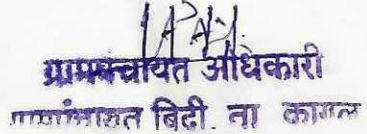 ग्रामपंचायत अधिकारी
ग्रामपंचायत बिद्री ता कागल